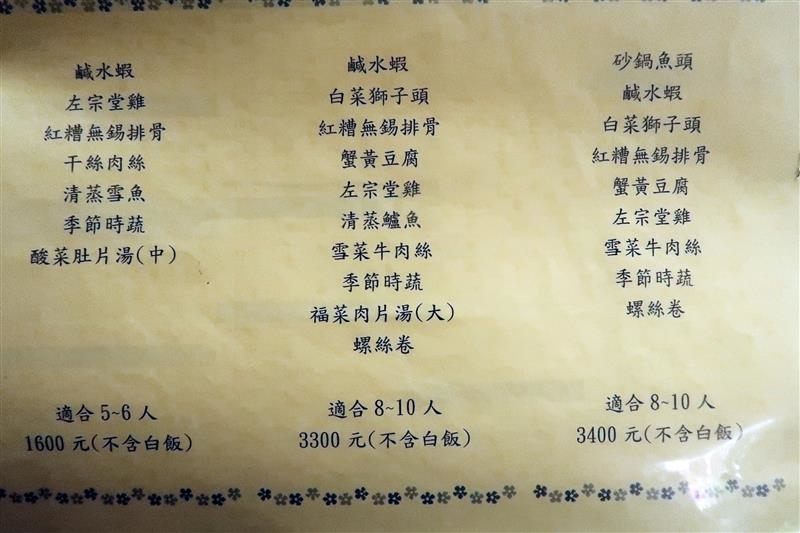 鹹水蝦
左宗堂雞
紅糟無錫排骨
干絲肉絲
清蒸雪魚
季節時蔬
酸菜肚片湯(中)
適合 5~6 人
1600 元(不含白飯)
鹹水蝦
白菜獅子頭
紅糟無錫排骨
蟹黃豆腐
左宗堂雞
清蒸鱸魚
雪菜牛肉絲
季節時蔬
福菜肉片湯(大)
螺絲卷
適合 8~10 人
3300 元(不含白飯)
砂鍋魚頭
鹹水蝦
白菜獅子頭
紅糟無錫排骨
蟹黃豆腐
左宗堂雞
雪菜牛肉絲
季節時蔬
螺絲卷
適合 8~10 人
3400 元(不含白飯)